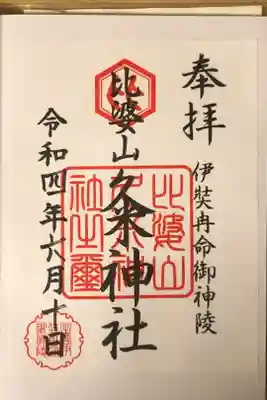 奉拝
伊弉冉命御神陵
比婆山久米神社
比婆山久米神社之璽
令和四年六月十日